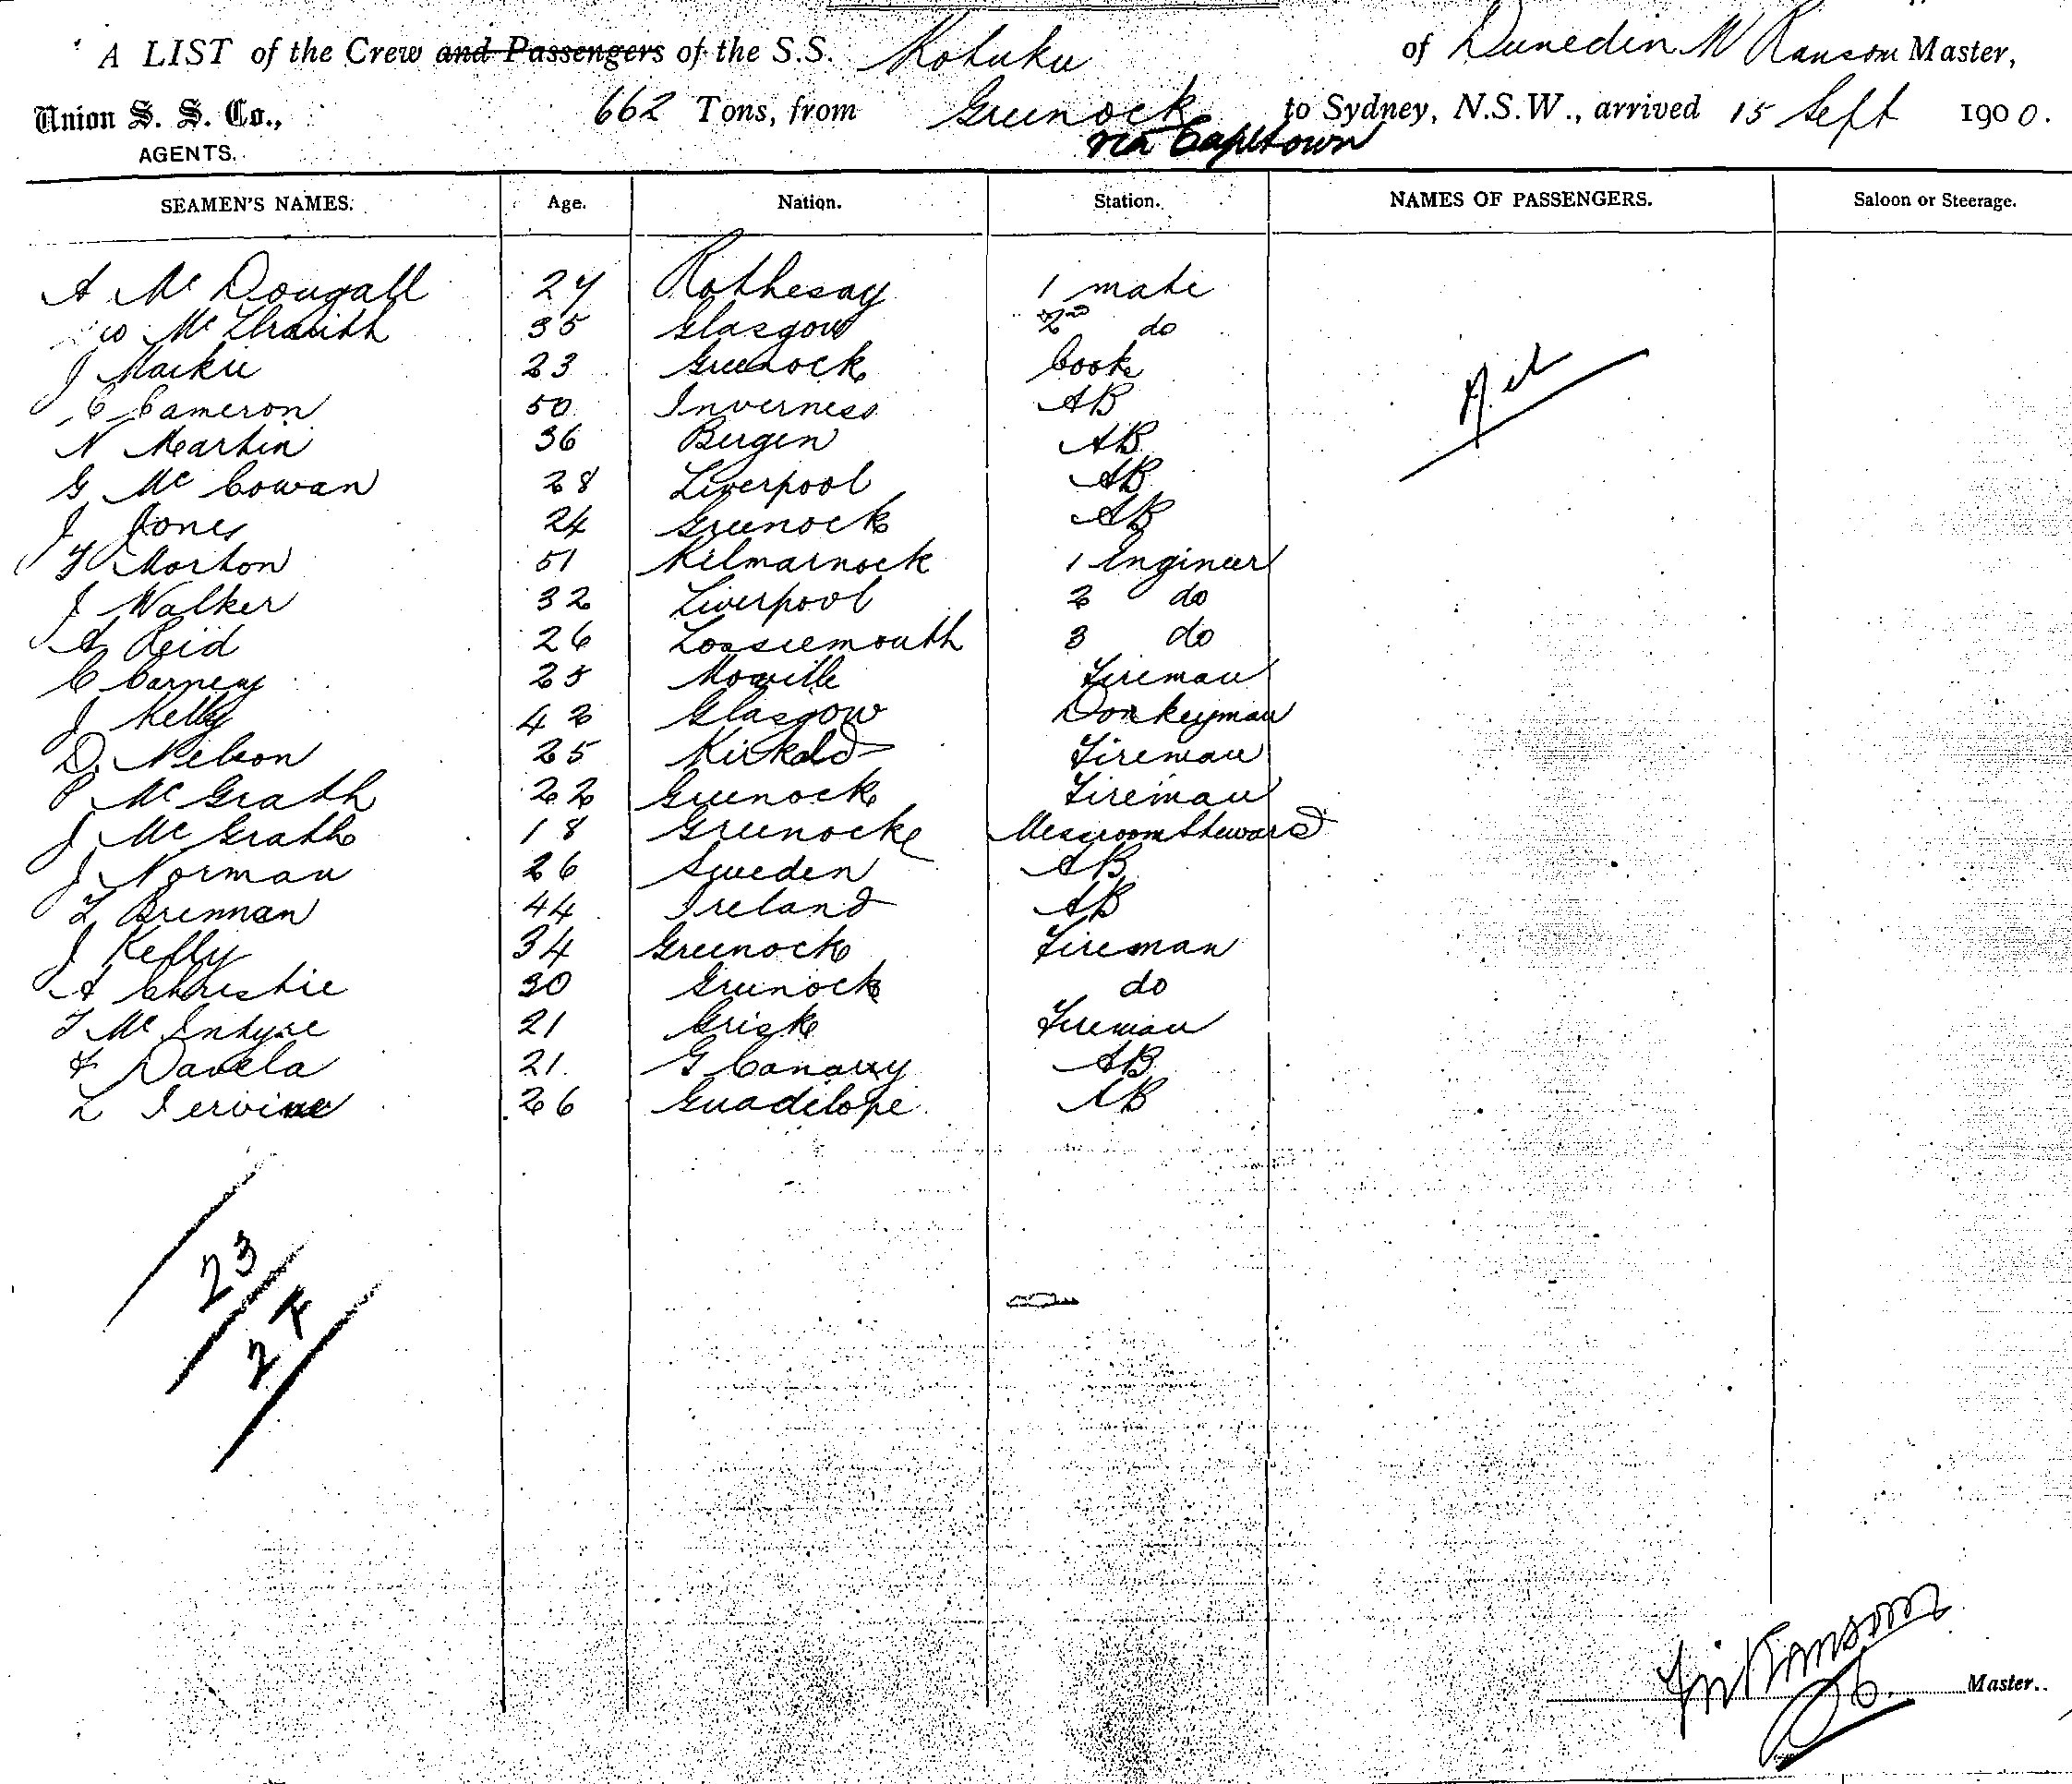 A LIST of the Crew and Passengers of the S.S. Kotuku of Dunedin W Ransom Master,
Union S. S. Co., 662 Tons, from Greenock to Sydney, N.S.W., arrived 15 Sept 1900.
AGENTS. via Capetown
SEAMEN'S NAMES. Age. Nation. Station. NAMES OF PASSENGERS. Saloon or Steerage.
A Mc Dougall 27 Rothesay 1 mate
W Mc Ilraith 35 Glasgow 2nd do
J Mackie 23 Greenock Cook Nil
C Cameron 50 Inverness AB
N Martin 36 Bergen AB
G Mc Cowan 28 Liverpool AB
J Jones 24 Greenock AB
Morton 51 Kilmarnock 1 Engineer
J Walker 32 Liverpool 2 do
A Reid 26 Lossiemouth 3 do
C Carney 25 Moville Fireman
J Kelly 42 Glasgow Donkeyman
D. Nelson 25 Kirkald Fireman
P Mc Grath 22 Greenock Fireman
J Mc Grath 18 Greenock Messroom Steward
J Norman 26 Sweden AB
L Brennan 44 Ireland AB
J Kelly 34 Greenock Fireman
A Christie 30 Greenock do
T Mc Intyre 21 Fireman
F Davela 21. G Canary AB
L Iervine 26 Guadelope AB
23
24
Ransom Master.